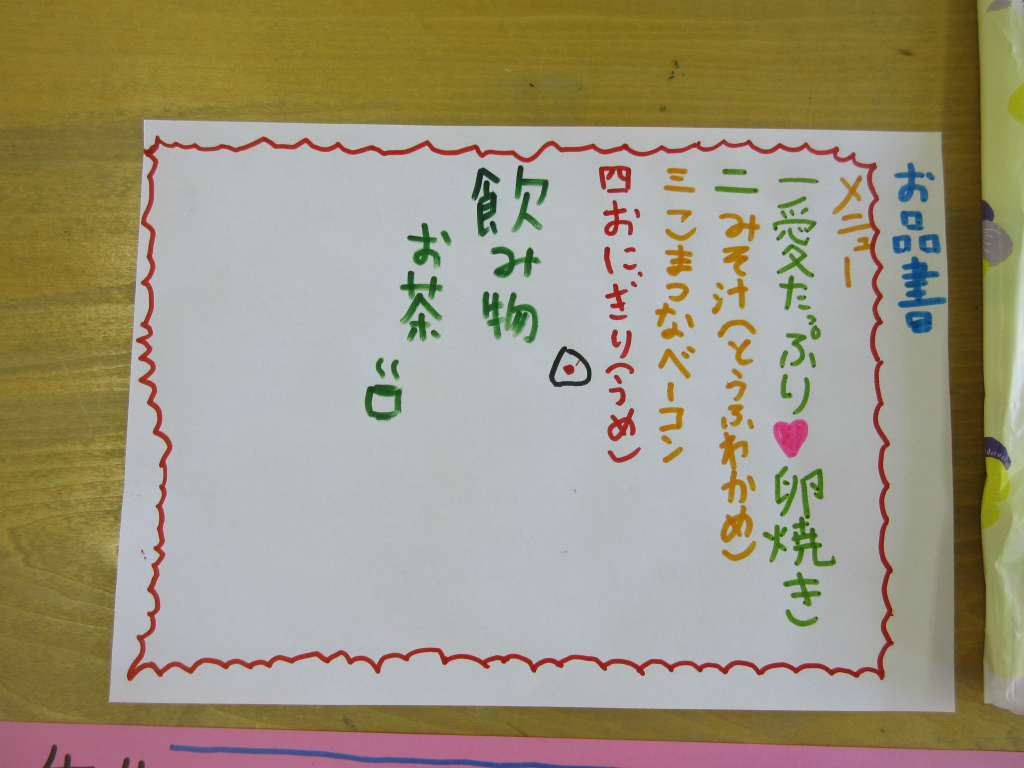 お品書
メニュー
一 愛たっぷり♥卵焼き
二 みそ汁(とうふわかめ)
三 こまつなベーコン
四 おにぎり(うめ)
飲み物
お茶